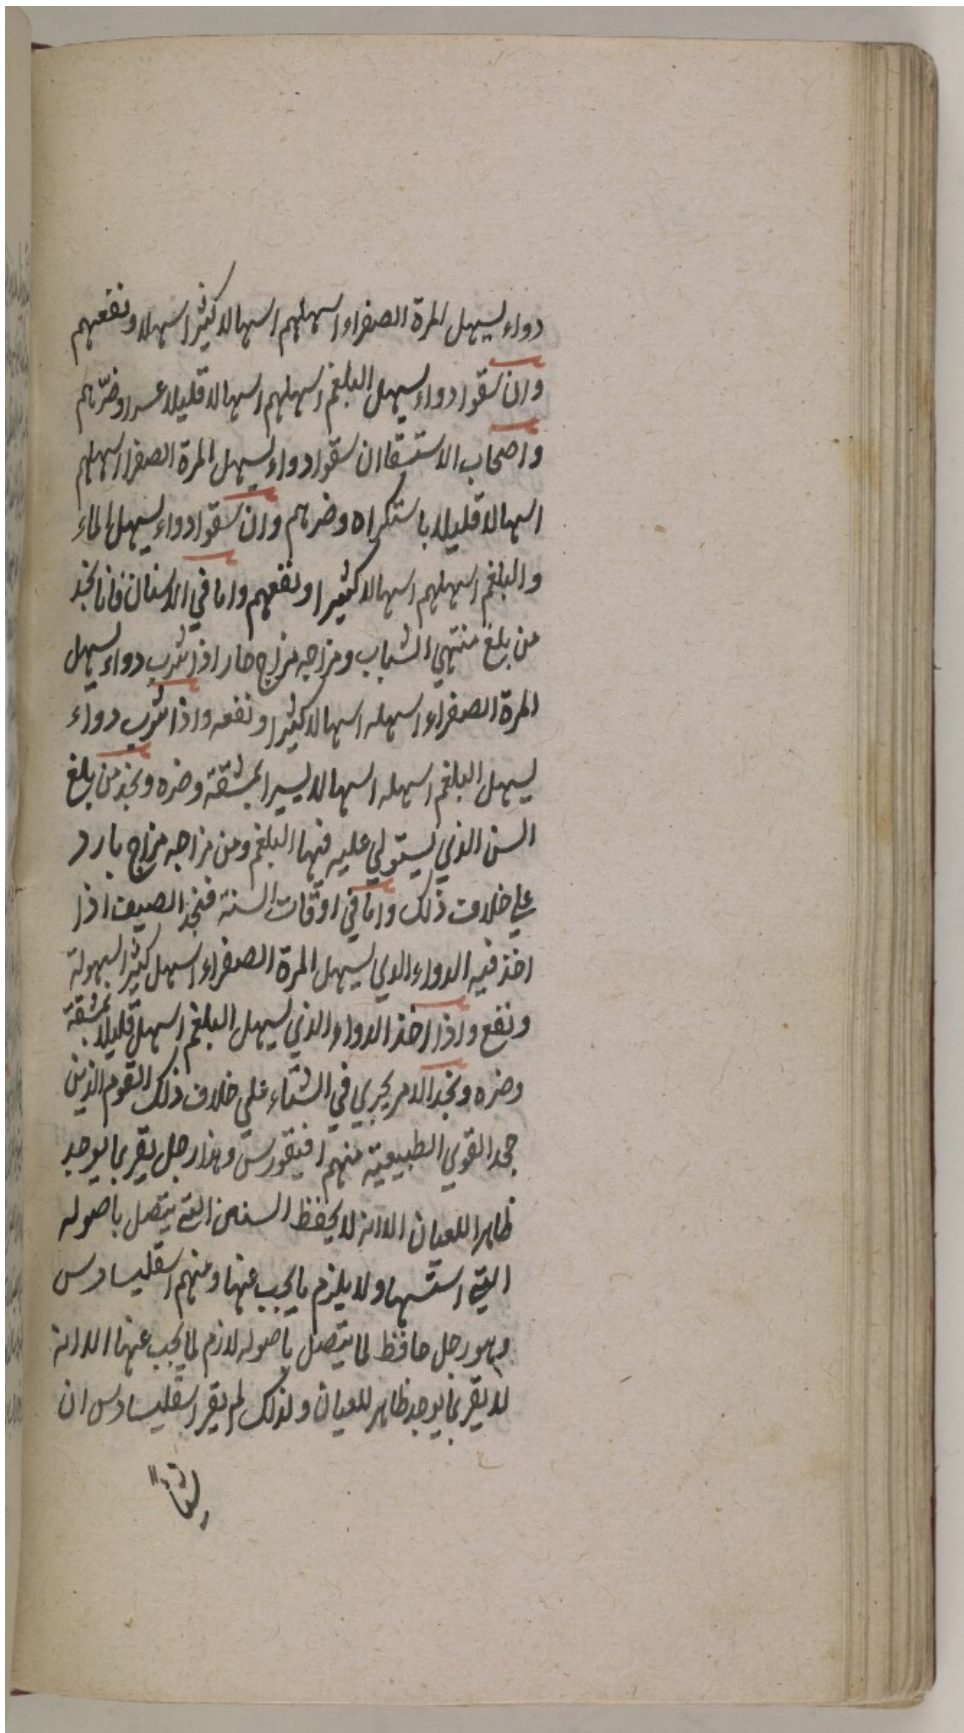 دواء يسهل المرة الصفراء اسهلهم اسهالا كثيرا سهلا ونفعهم
وان سقوا دواء يسهل البلغم اسهلهم اسهالا قليلا عسرا وضرّهم
واصحاب الاستسقا ان سقوا دواء يسهل المرة الصفرا اسهلهم
اسهالا قليلا باستكراه وضرهم وان سقوا دواء يسهل الماء
والبلغم اسهلهم اسهالا كثيرا ونفعهم واما في الاسنان فانا نجد
من بلغ منتهي الشباب ومزاجه مزاج حار اذا شرب دواء يسهل
المرة الصفراء اسهله اسهالا كثيرا ونفعه واذا شرب دواء
يسهل البلغم اسهله اسهالا يسيرا بمشقة وضره ونجد من بلغ
السن الذي يستولي عليه فيها البلغم ومن مزاجه مزاج بارد
علي خلاف ذلك واما في اوقات السنة فنجد الصيف اذا
اخذ فيه الدواء الذي يسهل المرة الصفراء اسهل كثيرا بسهولة
ونفع واذا اخذ الدواء الذي يسهل البلغم اسهل قليلا بمشقة
وضره ونجد الامر يجري في الشتاء علي خلاف ذلك القوم الذين
جحد القوي الطبيعية منهم افيقورس وهذا رجل يقر بما يوجد
ظاهرا للعيان الا انه لا يحفظ السنن التي يتصل باصوله
التي استسها ولا يلزم ما يجب عنها ومنهم اسقليبيادس
وهو رجل حافظ لما يتصل باصوله لازم لما يجب عنها الا انه
لا يقر بما يوجد ظاهر للعيان ولذلك لم يقر اسقليبيادس ان